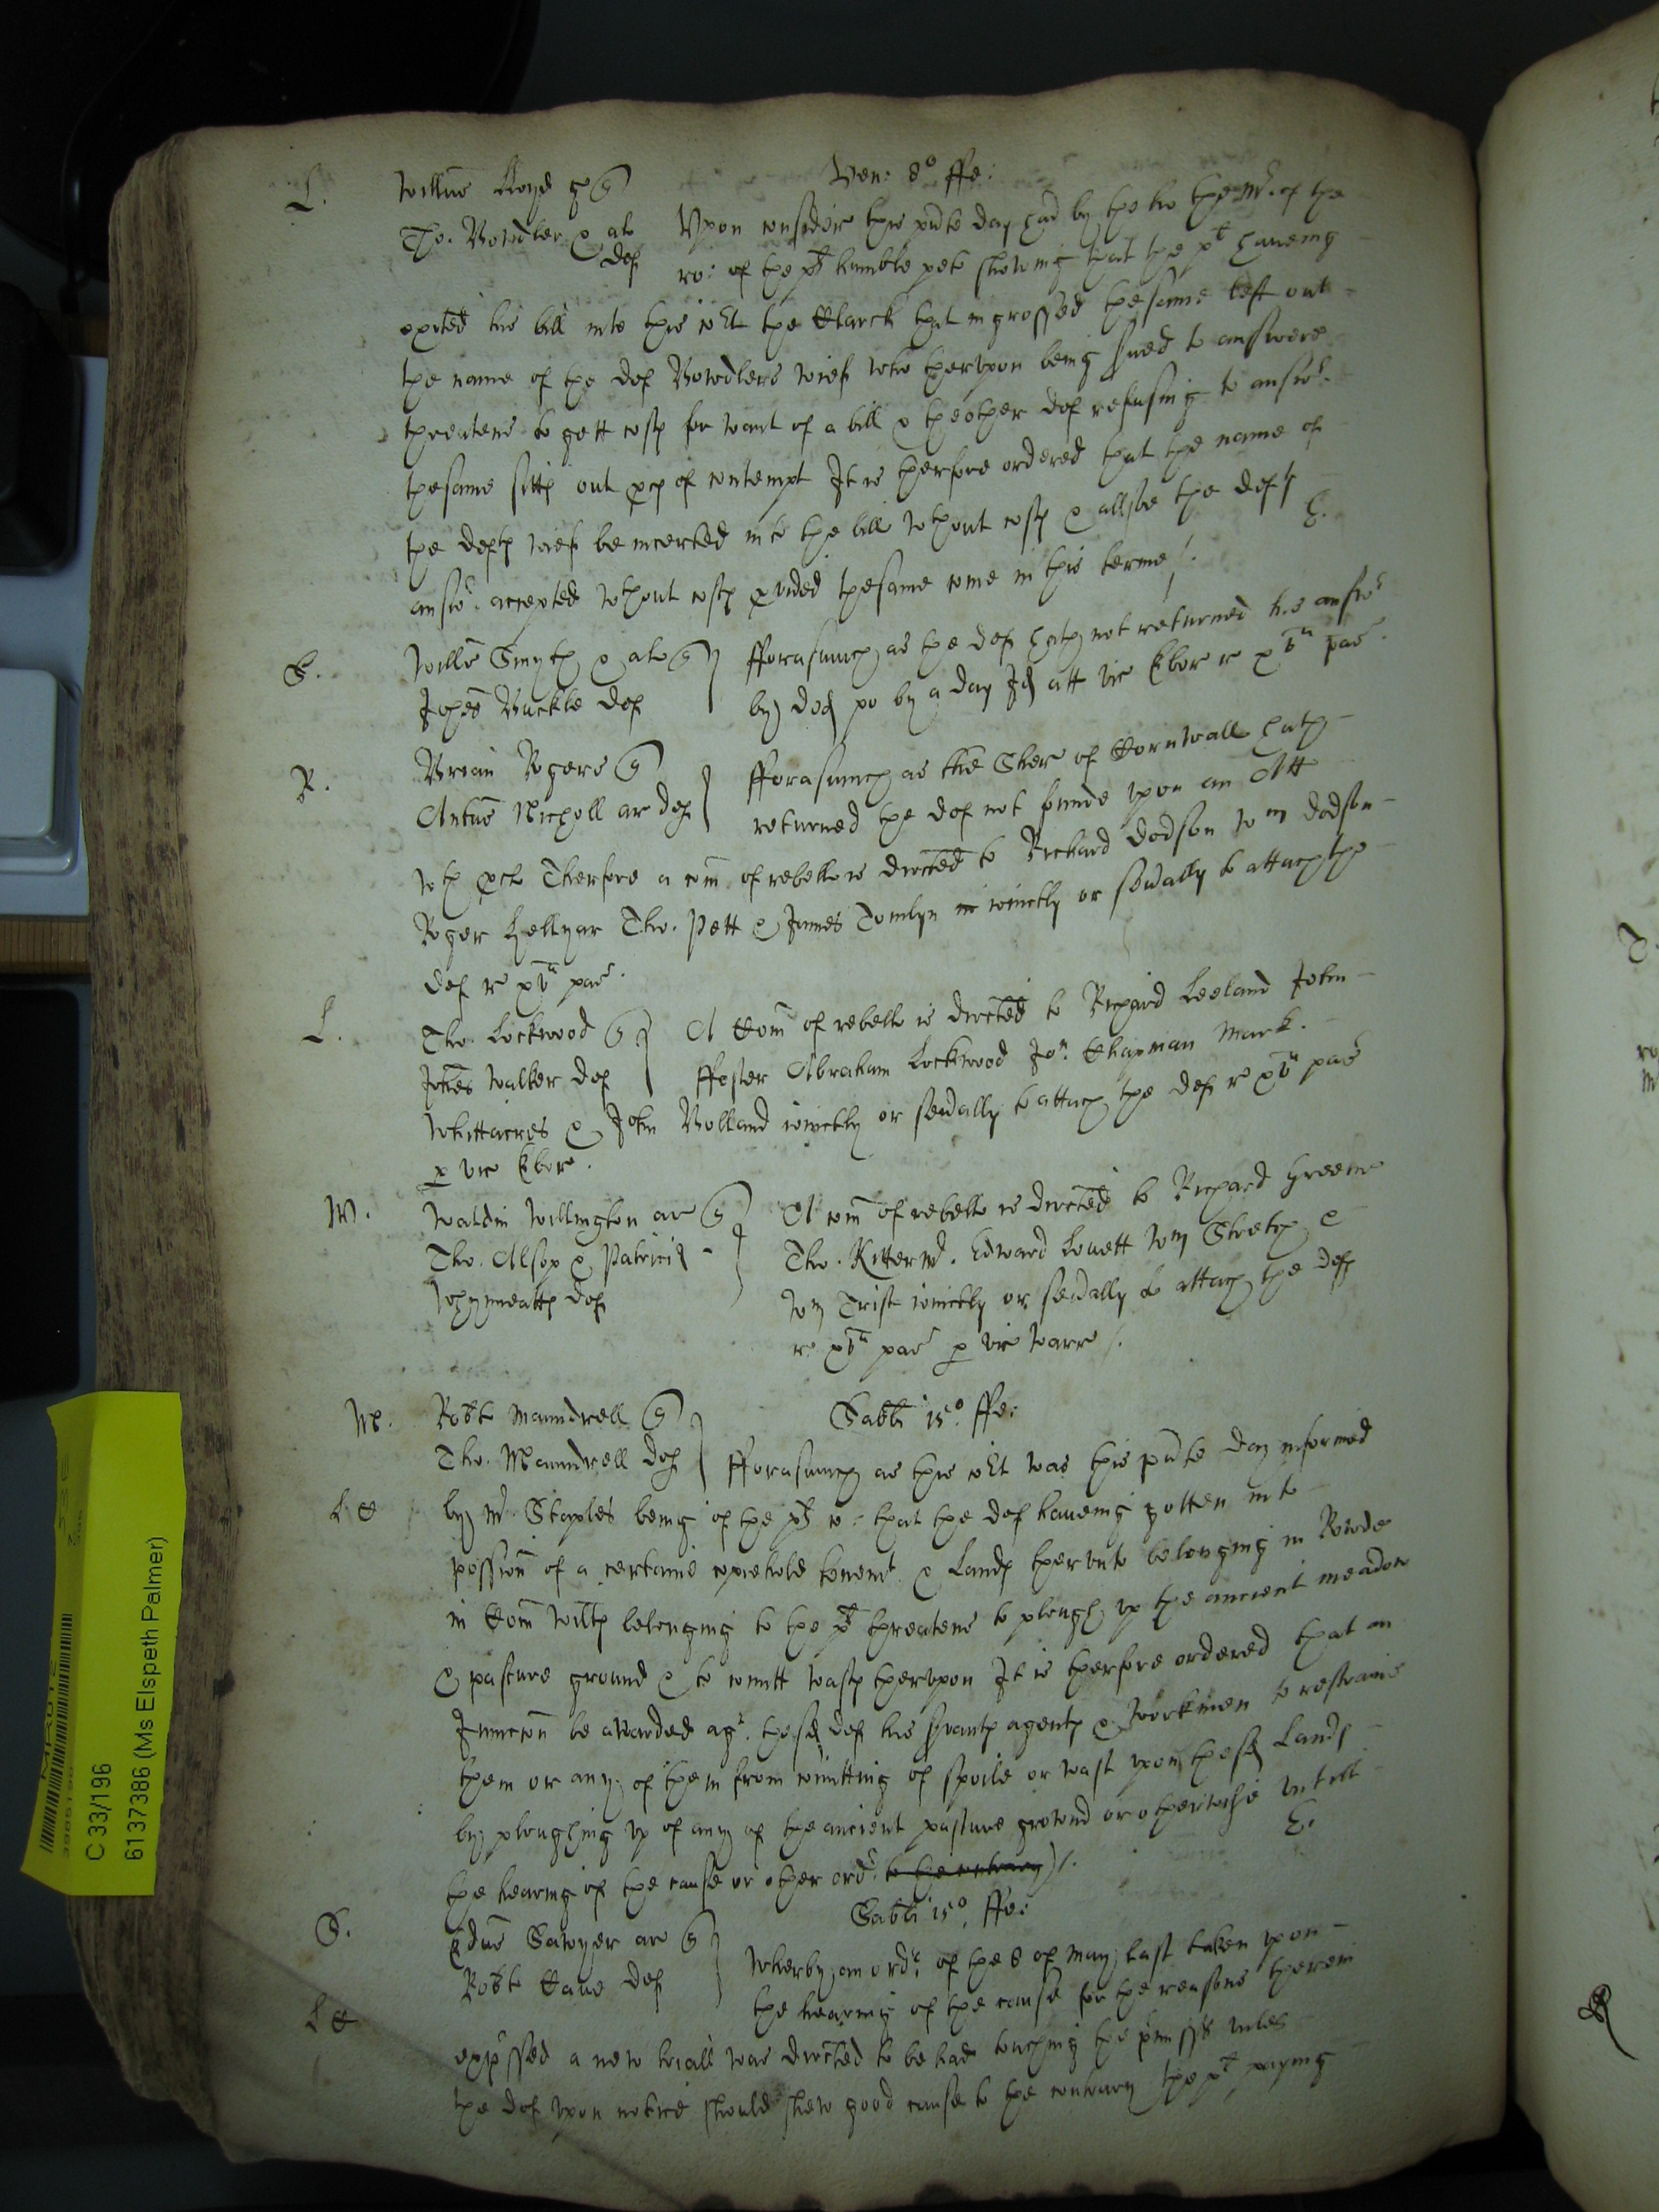 Ven: 8o ffe:
L. Willus Lloyd q
Tho. Bowdler & al def
Upon consider this pnte day had by the ho: the Mr. of the
ro: of the plt humble peto shewing that the plt haveing
exited his bill into this cort the Clarck that ingrossed thesame left out
the name of the def Bowdlers wief who therupon being sued to answere
threatens to gett costs for want of a bill & theother def refusing to answr.
thesame sitth out pcs of contempt It is therfore ordered that the name of
the defts wief be incerted into the bill wthout costs & allsoe the defts
answr. accepted wthout costs pvided thesame come in this terme /.
S. Willus Smyth & al q
Johes Buckle def
fforasmuch as the def hath not returned his answr
by ded po by a day Id att vic Ebor r xva pas
R. Brian Rogers q
Antus Nicholl ar def
fforasmuch as the Sher of Cornwall hath
returned the def not found upon an Att
wth pclo Therfore a com of rebello is directed to Richard Dodson Wm Dodson
Roger Hellyar Tho. Pett & James Tomlyn ioinctly or sevally to attach the
def r xva pas.
L. Tho. Lockwood q
Johes Walker def
A Com of rebello is directed to Richard Leeland John
ffoster Abraham Lockwood Jon. Chapman Mark.
Whittacres & John Bolland ioinctly or sevally to attach the def r xva pas
p vic Ebor.
W. Waldin Willington ar q
Tho. Alsop & Patricid
Whynneatts def
A com of rebello is directed to Richard Greene
Tho. Kitter Edward Lovett Wm Stretch &
Wm Trist ioinctly or sevally to attach the defs
r xva pas p vic Warr /.
Sabbi 15o. ffe:
M. Robto Maundrell q
Tho. Maundrell def
fforasmuch as this cort was this pnte day informed
L C by Mr. Staples being of the plts co: that the def haveing gotten into
possession of a certaine copiehold tenemt & Lands therunto belonging in Rowde
in Com Wilts belonging to the plt threatens to plough up the ancient meadow
& pasture ground & to comitt wasts therupon It is therfore ordered that an
Iniuncon be awarded agt. thesd def his servants agents & Workmen to restraine
them or any of them from comitting of spoile or wast upon thesd Lands
by ploughing up of any of the ancient pasture ground or otherwise untill
the hearing of the cause or other ordr. to the contrary /.
Sabbi 15o. ffe:
S. Edus Sawyer ar q
Robto Cave def
Wherby an ordr. of the 8 of May last taken upon
the hearing of the cause for the reasons therein
L C
expssed a new triall was directed to be had touching the pmisses unles
the def upon notice should shew good cause to the contrary the plt paying
C 33/196
6137386 (Ms Elspeth Palmer)